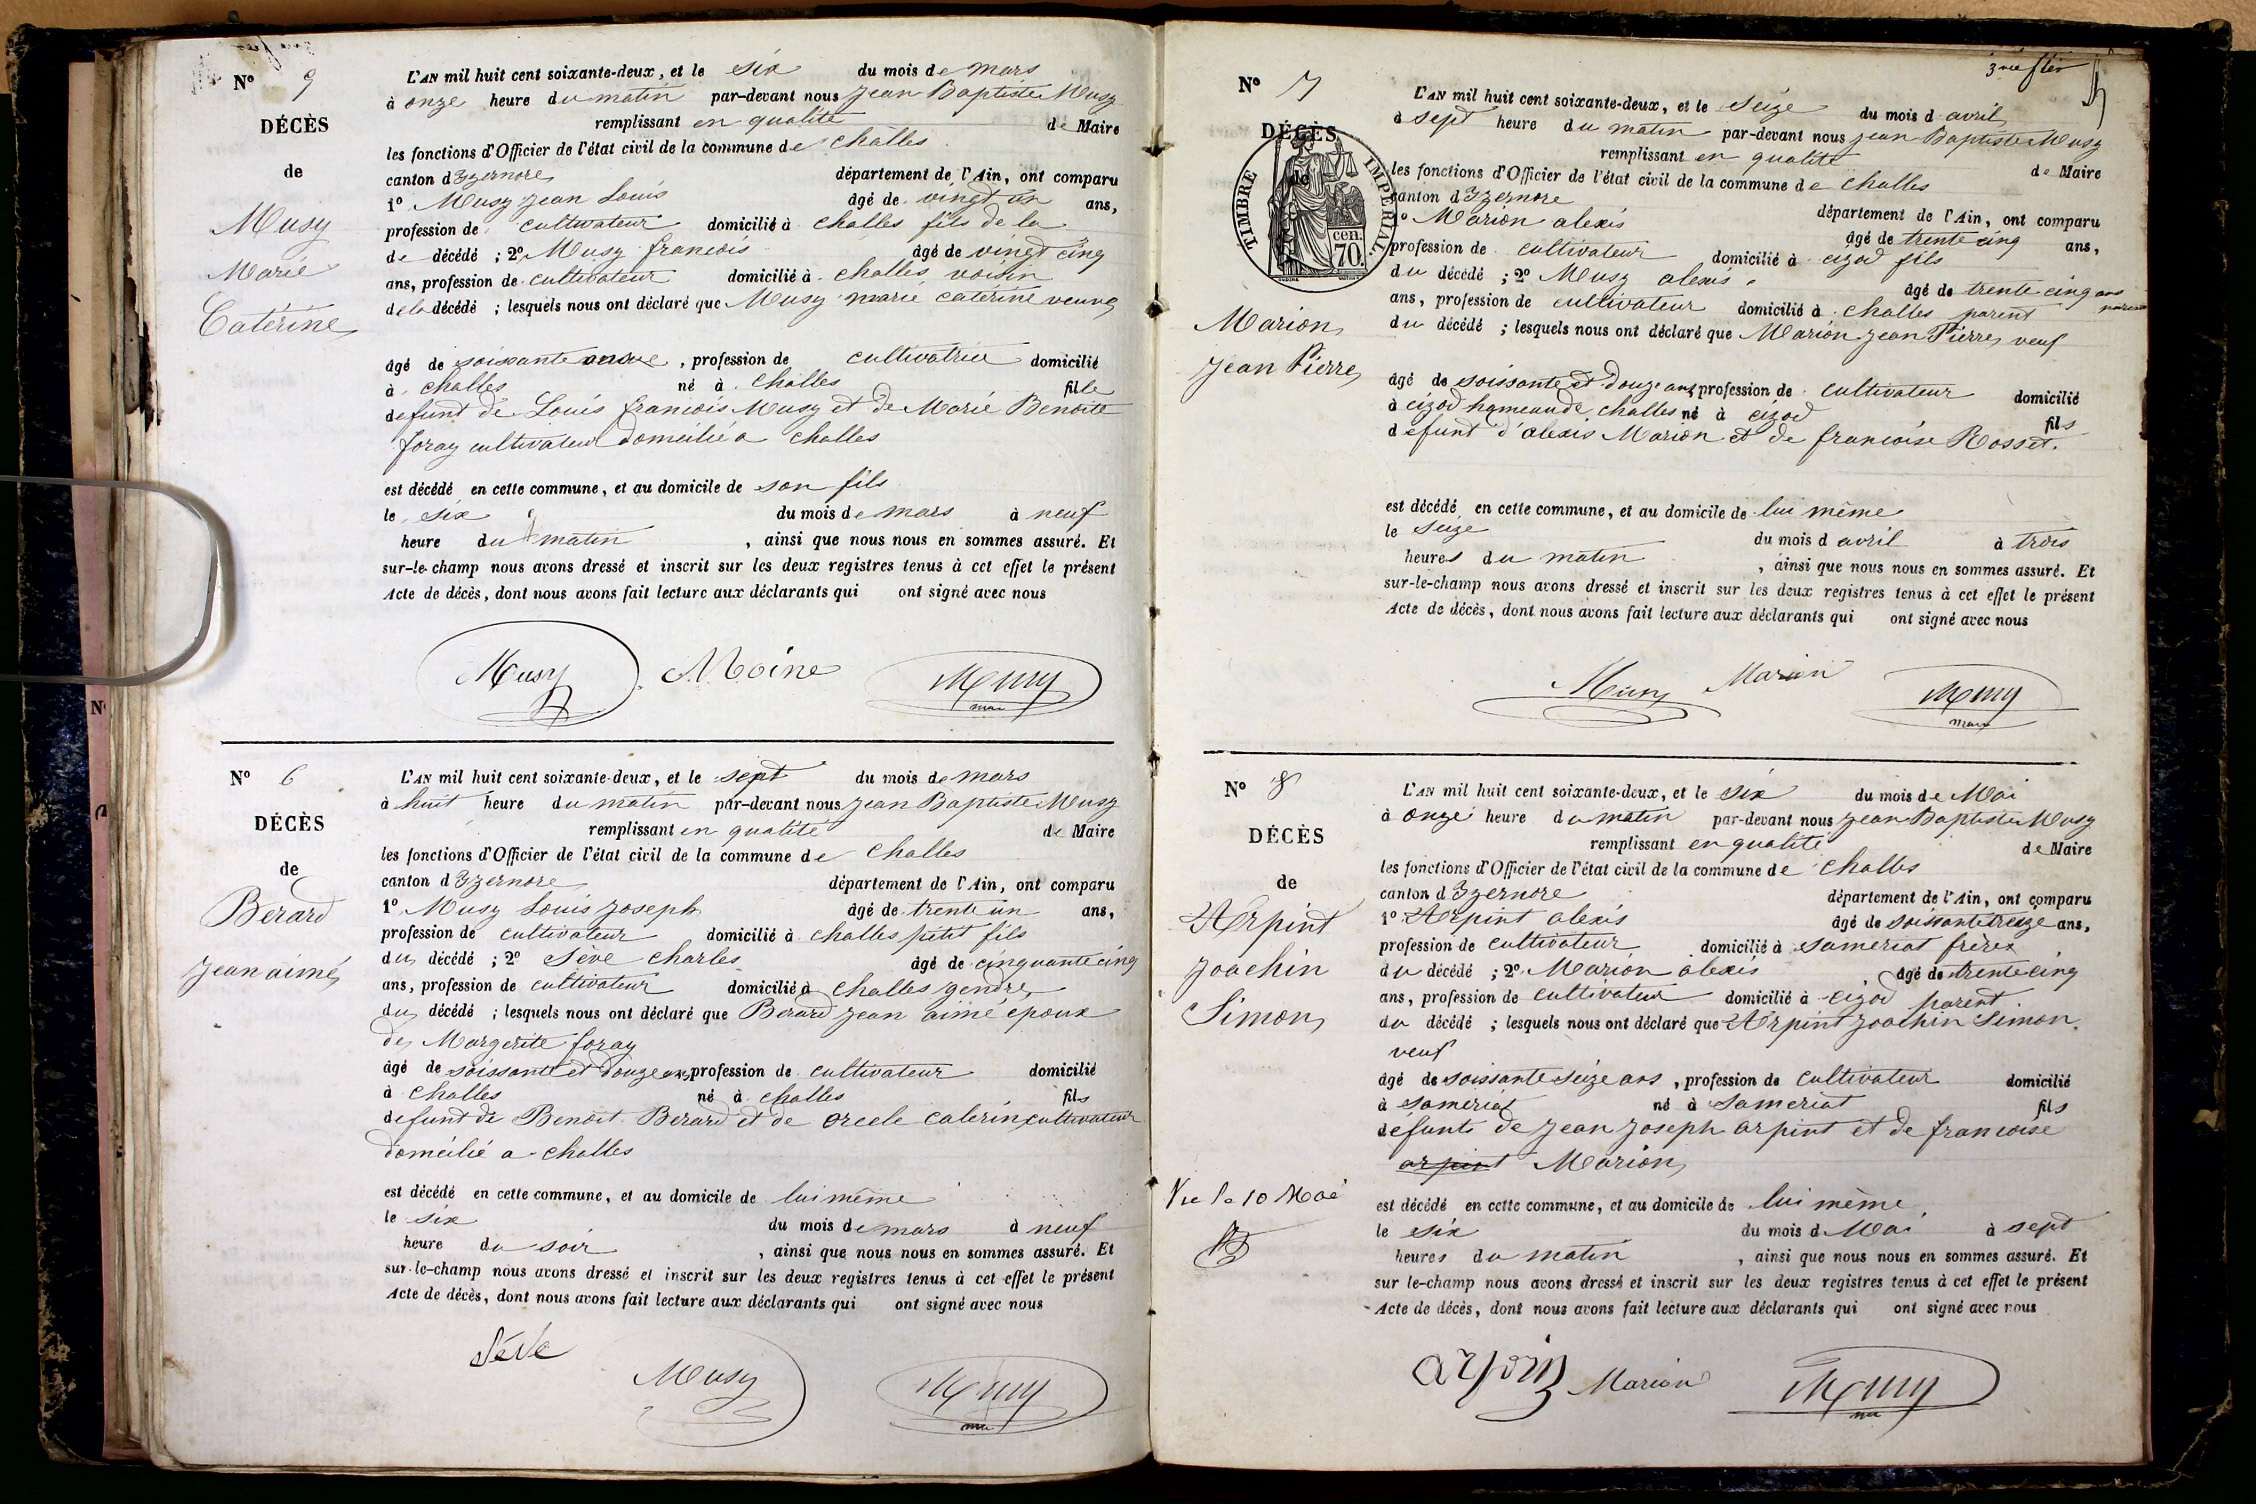 N° 9
DÉCÈS
de
Musy
Marie
Catérine
L'AN mil huit cent soixante-deux, et le six du mois de mars
à onze heure du matin par-devant nous Jean Baptiste Musy
remplissant en qualité de Maire
les fonctions d'Officier de l'état civil de la commune de Challes
canton d'Izernore département de l'Ain, ont comparu
1° Musy Jean Louis âgé de vingt un ans,
profession de cultivateur domicilié à Challes fils de la
de décédé ; 2° Musy francois âgé de vingt cinq
ans, profession de cultivateur domicilié à Challes voisin
de la décédé ; lesquels nous ont déclaré que Musy marie catérine veuve
âgé de soissante , profession de cultivatrice domicilié
à Challes né à Challes fille
defunt de Louis francois Musy et de Marie Benoite
foray cultivateur domcilié a challes
est décédé en cette commune, et au domicile de son fils
le six du mois de mars à neuf
heure du matin , ainsi que nous nous en sommes assuré. Et
sur-le-champ nous avons dressé et inscrit sur les deux registres tenus à cet effet le présent
Acte de décès, dont nous avons fait lecture aux déclarants qui ont signé avec nous
Musy Moine Musy
maire
N° 6
DÉCÈS
de
Berard
Jean aimé
L'AN mil huit cent soixante-deux, et le sept du mois de mars
à huit heure du matin par-devant nous Jean Baptiste Musy
remplissant en qualité de Maire
les fonctions d'Officier de l'état civil de la commune de Challes
canton d'Izernore département de l'Ain, ont comparu
1° Musy Louis Joseph âgé de trente un ans,
profession de cultivateur domicilié à Challes petit fils
du décédé ; 2° Sève Charles âgé de cinquante cinq
ans, profession de cultivateur domicilié à Challes gendre
du décédé ; lesquels nous ont déclaré que Berard Jean aimé epoux
de Margerite foray
âgé de soissante et douze ans, profession de cultivateur domicilié
à Challes né à challes fils
defunt de Benoit Berard et de orcele caterin, cultivateur
domcilié a challes
est décédé en cette commune, et au domicile de lui même
le six du mois de mars à neuf
heure du soir , ainsi que nous nous en sommes assuré. Et
sur-le-champ nous avons dressé et inscrit sur les deux registres tenus à cet effet le présent
Acte de décès, dont nous avons fait lecture aux déclarants qui ont signé avec nous
Sève Musy Musy
3me
N° 7
DÉCÈS
de
TIMBRE IMPÉRIAL
70 cen.
Marion
Jean Pierre
L'AN mil huit cent soixante-deux, et le seize du mois d'avril
à sept heure du matin par-devant nous Jean Baptiste Musy
remplissant en qualité de Maire
les fonctions d'Officier de l'état civil de la commune de Challes
canton d'Izernore département de l'Ain, ont comparu
1° Marion alexis âgé de trente cinq ans,
profession de cultivateur domicilié à cizod fils
du décédé ; 2° Musy alexis âgé de trente cinq ans
ans, profession de cultivateur domicilié à challes parent
du décédé ; lesquels nous ont déclaré que Marion Jean Pierre veuf
âgé de soissante et douze ans, profession de cultivateur domicilié
à cizod hameau de challes né à cizod fils
defunt d'alexis Marion et de francoise Rosset.
est décédé en cette commune, et au domicile de lui même
le seize du mois d'avril à trois
heures du matin , ainsi que nous nous en sommes assuré. Et
sur-le-champ nous avons dressé et inscrit sur les deux registres tenus à cet effet le présent
Acte de décès, dont nous avons fait lecture aux déclarants qui ont signé avec nous
Musy Marion Musy
maire
N° 8
DÉCÈS
de
Arpint
Joachin
Simon
Vu le 10 Mai
L'AN mil huit cent soixante-deux, et le six du mois de Mai
à onze heure du matin par-devant nous Jean Baptiste Musy
remplissant en qualité de Maire
les fonctions d'Officier de l'état civil de la commune de challes
canton d'Izernore département de l'Ain, ont comparu
1° Arpint alexis âgé de soissante treize ans,
profession de cultivateur domicilié à sameriat frère
du décédé ; 2° Marion alexis âgé de trente cinq
ans, profession de cultivateur domicilié à cizod parent
du décédé ; lesquels nous ont déclaré que Arpint Joachin Simon
veuf
âgé de soissante seize ans , profession de cultivateur domicilié
à sameriat né à Sameriat fils
défunts de Jean Joseph arpint et de francoise
arpint Marion
est décédé en cette commune, et au domicile de lui même
le six du mois de Mai à sept
heures du matin , ainsi que nous nous en sommes assuré. Et
sur le-champ nous avons dressé et inscrit sur les deux registres tenus à cet effet le présent
Acte de décès, dont nous avons fait lecture aux déclarants qui ont signé avec nous
arpin Marion Musy